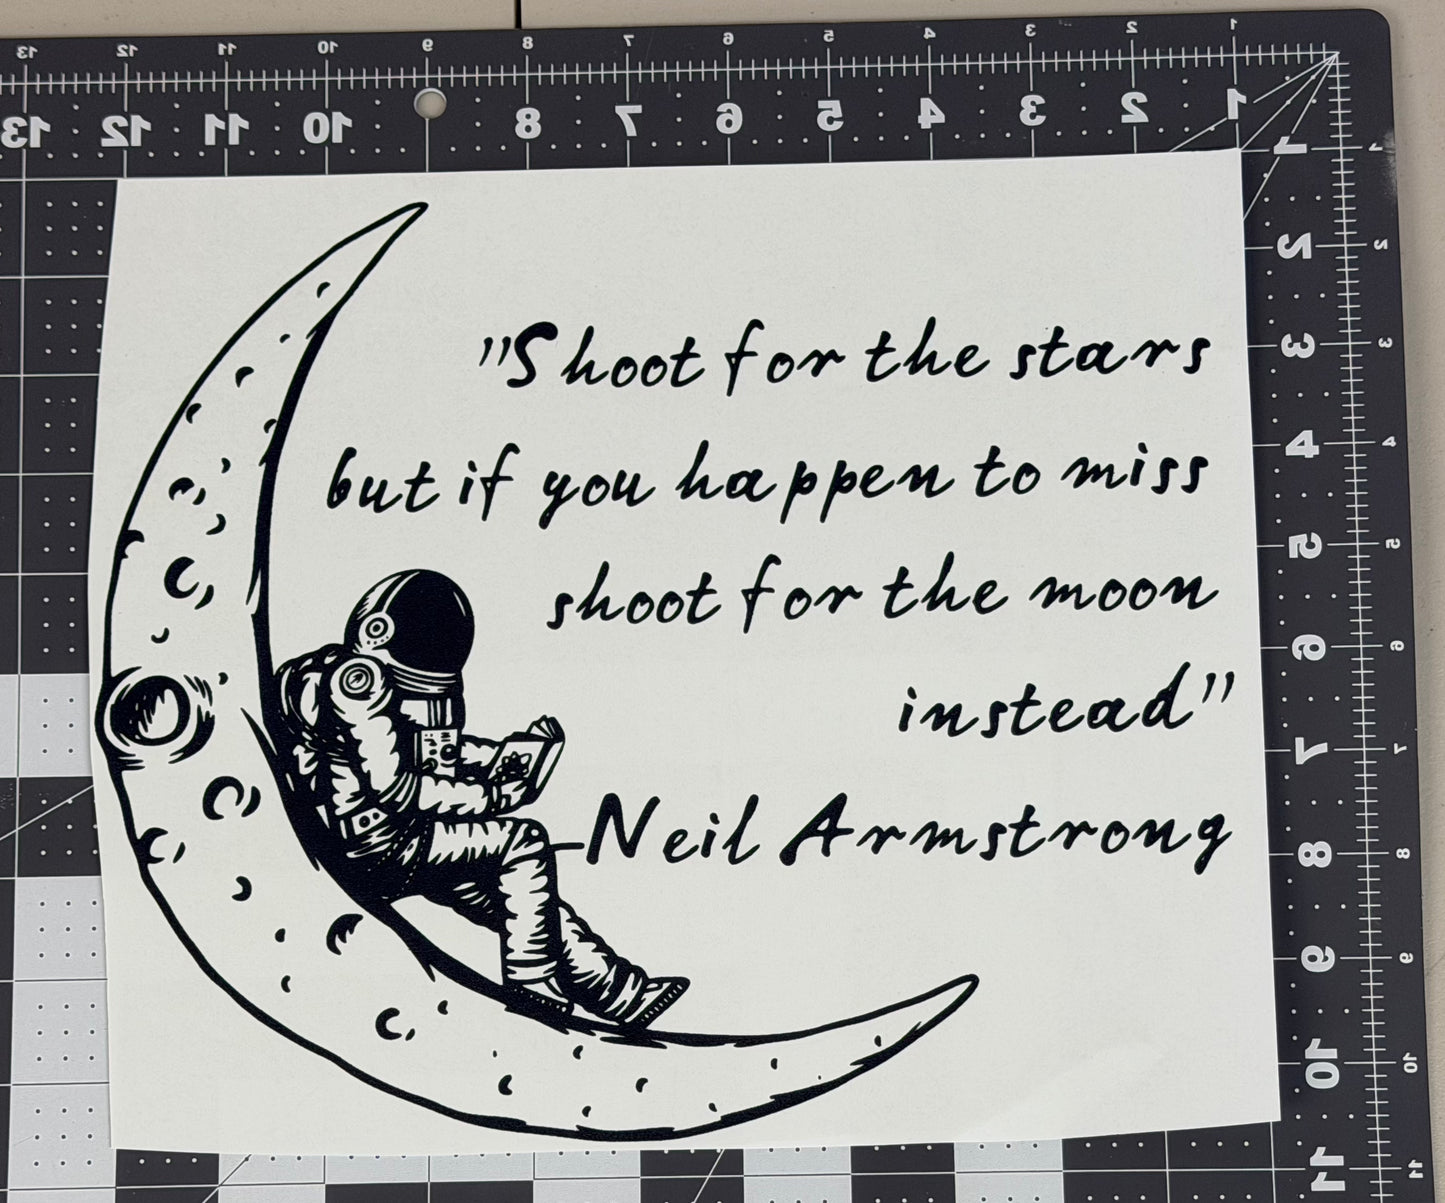 13 12 11 10 9 8 7 6 5 4 3 2 1
13 12 11 10 8 7 6 5 4 3 2 1
"Shoot for the stars
but if you happen to miss
shoot for the moon
instead"
-Neil Armstrong
1 2 3 4 5 6 7 8 9 10 11
1 2 3 4 5 6 7 8 9 10 11